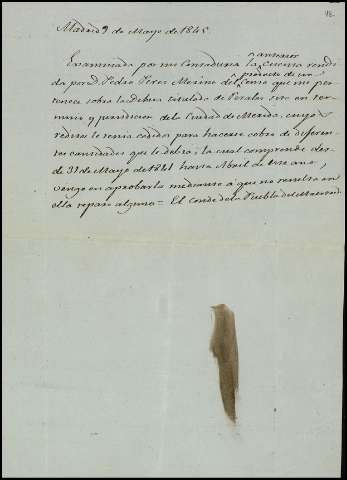 18.
Madrid 9 de Mayo de 1845
Examinada por mi Contaduria la anterior cuenta rendi
da por D. Pedro Perez Merino del producto de un censo que me per
tenece sobre la Dehesa titulada de Perales sita en ter
mino y jurisdiccion de la Ciudad de Merida, cuyos
reditos le tenia cedidos para hacerse cobro de diferen
tes cantidades que le debia; la cual comprende des
de 31 de Mayo de 1841 hasta Abril de este año,
vengo en aprobarla mediante á que no resulta en
ella reparo alguno = El conde de la Puebla del Maestre